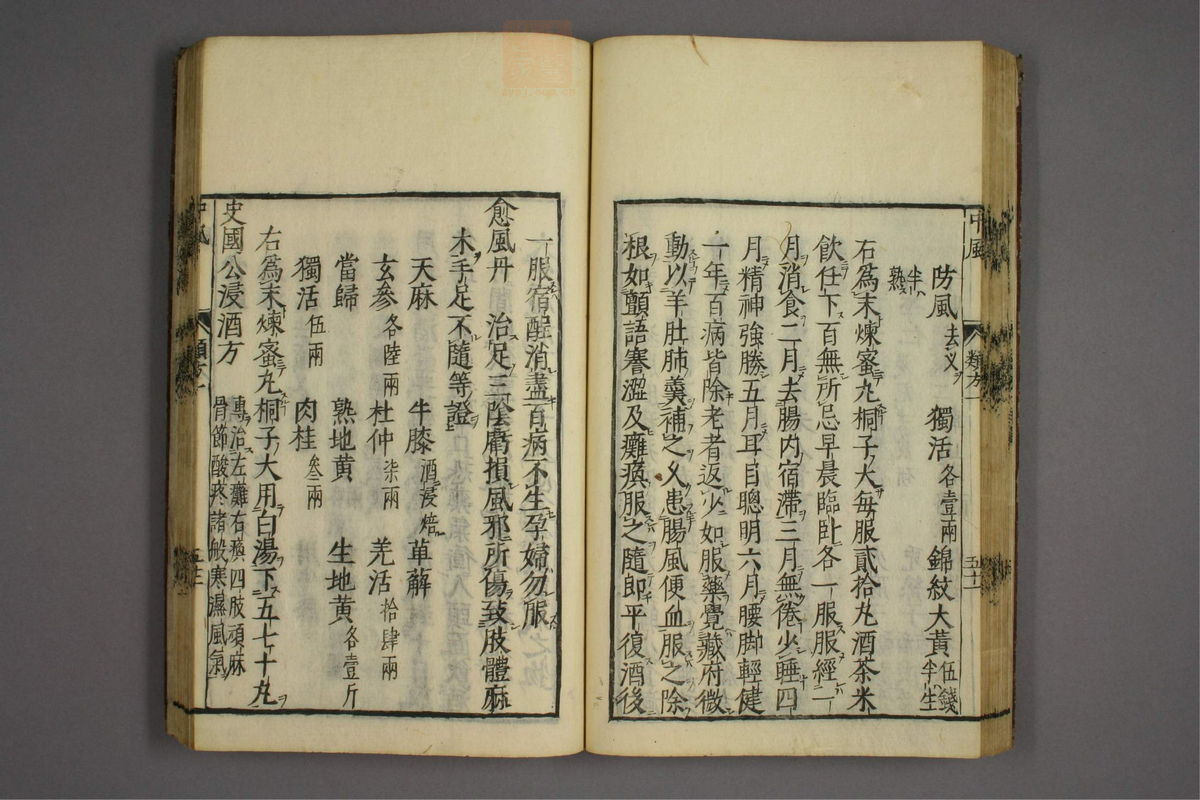 中風
類方
防風去义 獨活各壹兩 錦紋大黃伍錢半生
半熟
右爲末煉蜜丸桐子大每服貳拾丸酒茶米
飲任下百無所忌早晨臨卧各一服服經一
月消食二月去腸内宿滯三月無倦少睡四
月精神強勝五月耳目聰明六月腰脚輕健
一年百病皆除老者返少如服藥覺藏府微
動以羊肚肺羹補之义患腸風便血服之除
根如顫語謇澀及癱瘓服之隨即平復酒後
一服宿酲消盡百病不生孕婦勿服
愈風丹 治足三陰虧損風邪所傷致肢體麻
木手足不隨等證
天麻 牛膝酒浸焙 萆薢
玄參各陸兩 杜仲柒兩 羌活拾肆兩
當歸 熟地黄 生地黄各壹斤
獨活伍兩 肉桂叁兩
右爲末煉蜜丸桐子大用白湯下五七十丸
史國公浸酒方 專治左癱右瘓四肢頑麻
骨節酸疼諸般寒濕風氣
中風
類方